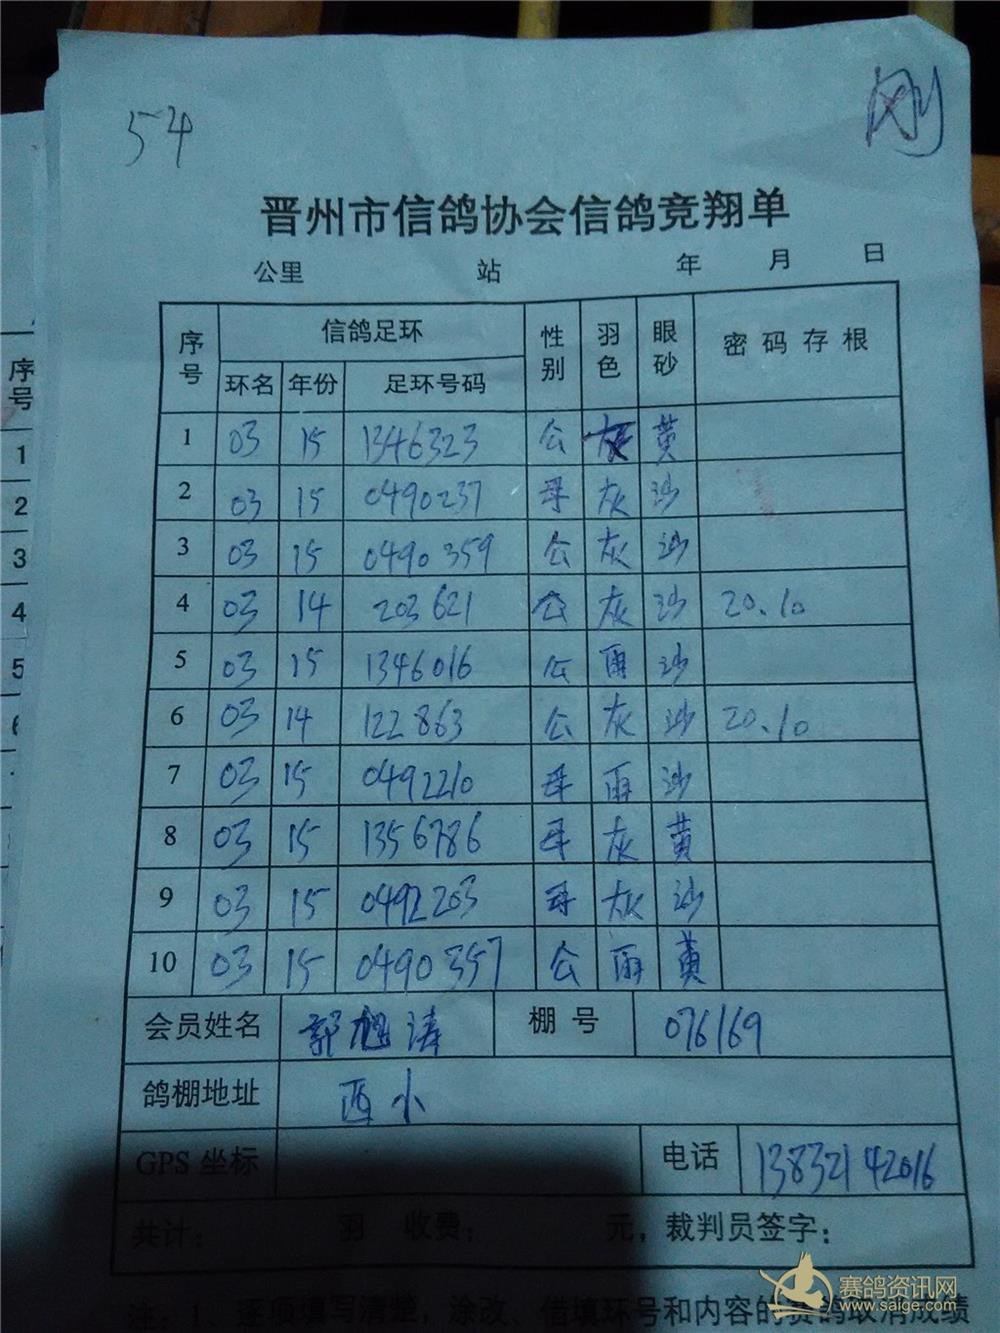 54
刚
晋州市信鸽协会信鸽竞翔单
公里 站 年 月 日
序号 信鸽足环 性别 羽色 眼砂 密码存根
环名 年份 足环号码
1 03 15 1346323 公 灰 黄
2 03 15 0490237 母 灰 沙
3 03 15 0490359 公 灰 沙
4 03 14 203621 公 灰 沙 20.10
5 03 15 1346016 公 雨 沙
6 03 14 122863 公 灰 沙 20.10
7 03 15 0492210 母 雨 沙
8 03 15 1356786 母 灰 黄
9 03 15 0492203 母 灰 沙
10 03 15 0490357 公 雨 黄
会员姓名 郭旭涛 棚号 076169
鸽棚地址 西小
GPS 坐标 电话 13832142016
共计: 羽 收费: 元, 裁判员签字:
注: 1、逐项填写清楚, 涂改、借填环号和内容的赛鸽取消成绩
序号
1
2
3
4
5
6
赛鸽资讯网
www.saige.com